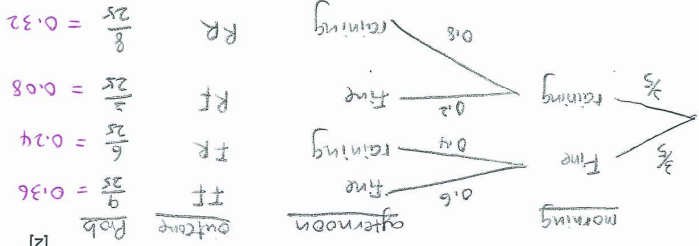 [2]
morning afternoon outcome Prob
0.6 fine FF 9/25 = 0.36
3/5 Fine 0.4 raining FR 6/25 = 0.24
2/5 raining 0.2 fine RF 2/25 = 0.08
0.8 raining RR 8/25 = 0.32